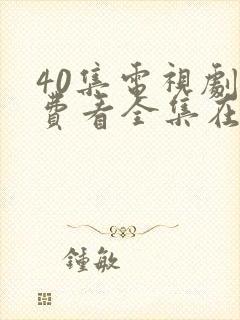 40集電視劇
費看全集在
鍾敏